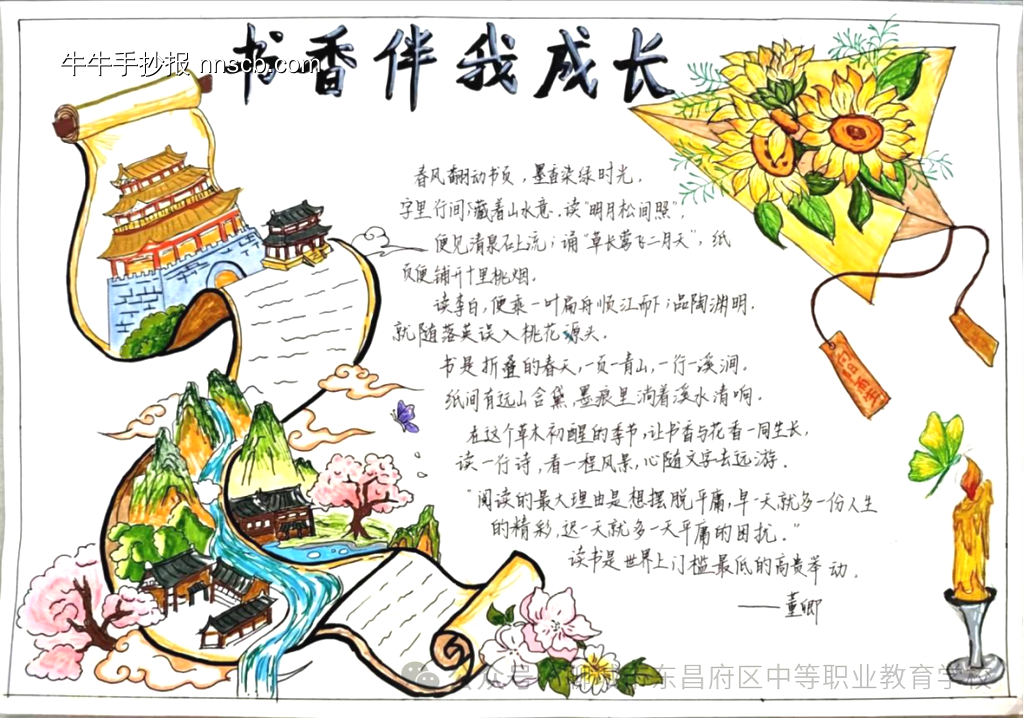 牛牛手抄报 nnscb.com
书香伴我成长
春风翻动书页，墨香染绿时光，
字里行间藏着山水意。读“明月松间照”，
便见清泉石上流；诵“草长莺飞二月天”，纸
页便铺开十里桃烟。
读李白，便乘一叶扁舟顺江而下；品陶渊明，
就随落英误入桃花源头。
书是折叠的春天，一页一青山，一行一溪涧。
纸间有远山含黛，墨痕里淌着溪水清响。
在这个草木初醒的季节，让书香与花香一同生长，
读一行诗，看一程风景，心随文字去远游。
“阅读的最大理由是想摆脱平庸，早一天就多一份人生
的精彩，迟一天就多一天平庸的困扰。”
读书是世界上门槛最低的高贵举动。
——董卿
公众号
东昌府区中等职业教育学校